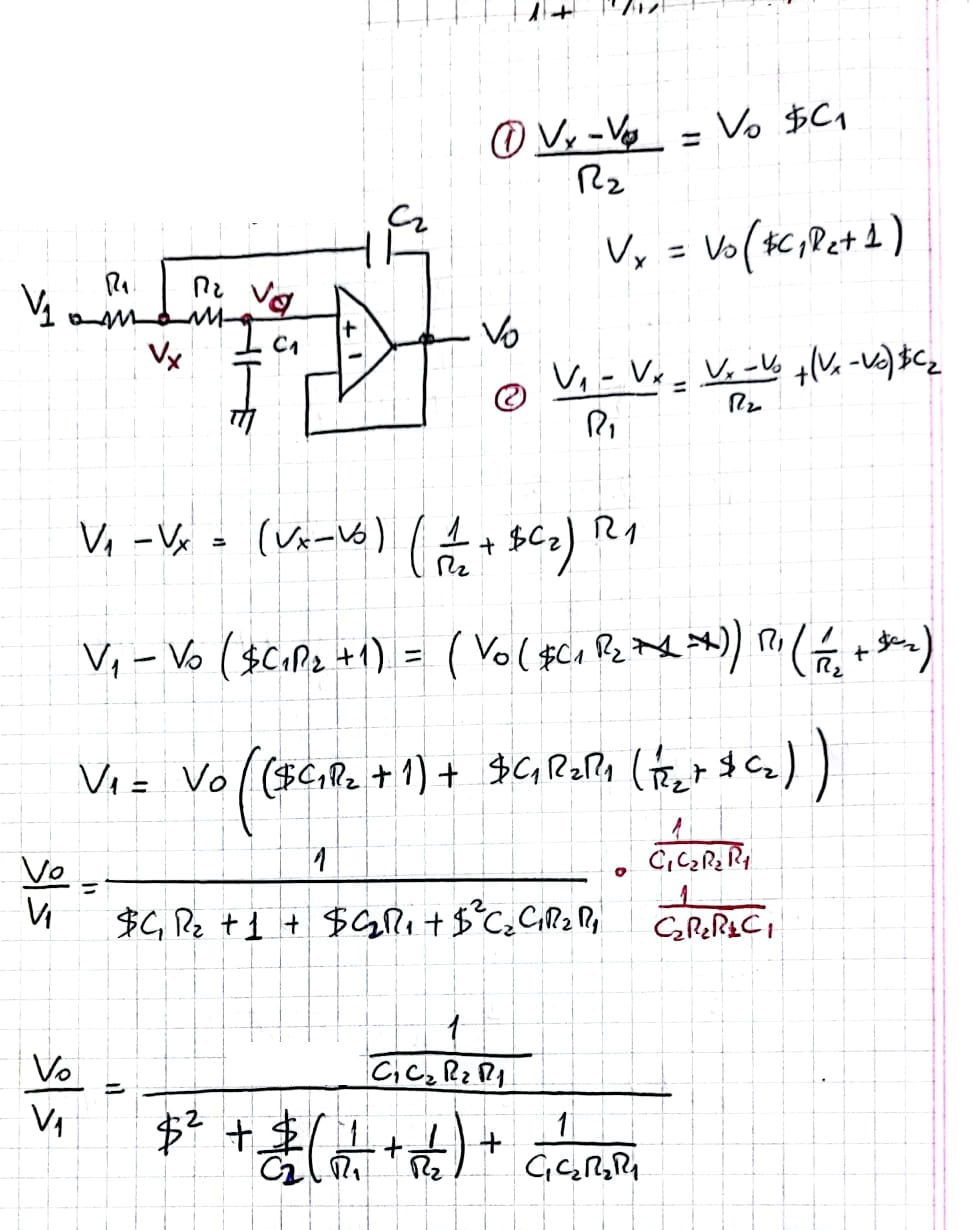 ① (Vx - Vo)/R2 = Vo $C1
Vx = Vo($C1R2 + 1)
C2
R1 R2 Vo
V1
Vx
C1
+
-
Vo
② (V1 - Vx)/R1 = (Vx - Vo)/R2 + (Vx - Vo)$C2
V1 - Vx = (Vx - Vo) (1/R2 + $C2) R1
V1 - Vo ($C1R2 + 1) = (Vo($C1 R2 +1 -1)) R1 (1/R2 + $C2)
V1 = Vo(($C1R2 + 1) + $C1R2R1 (1/R2 + $C2))
Vo/V1 = 1/($C1R2 + 1 + $C2R1 + $²C2C1R2R1) · (1/(C1C2R2R1))/(1/(C2R2R1C1))
Vo/V1 = (1/(C1C2R2R1))/($² + $/C2 (1/R1 + 1/R2) + 1/(C1C2R2R1))